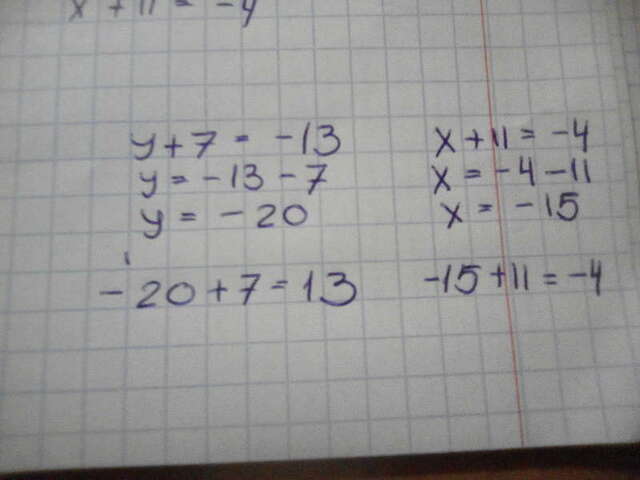 x + 11 = -4
y + 7 = -13
y = -13 - 7
y = -20
-20 + 7 = 13
x + 11 = -4
x = -4 - 11
x = -15
-15 + 11 = -4